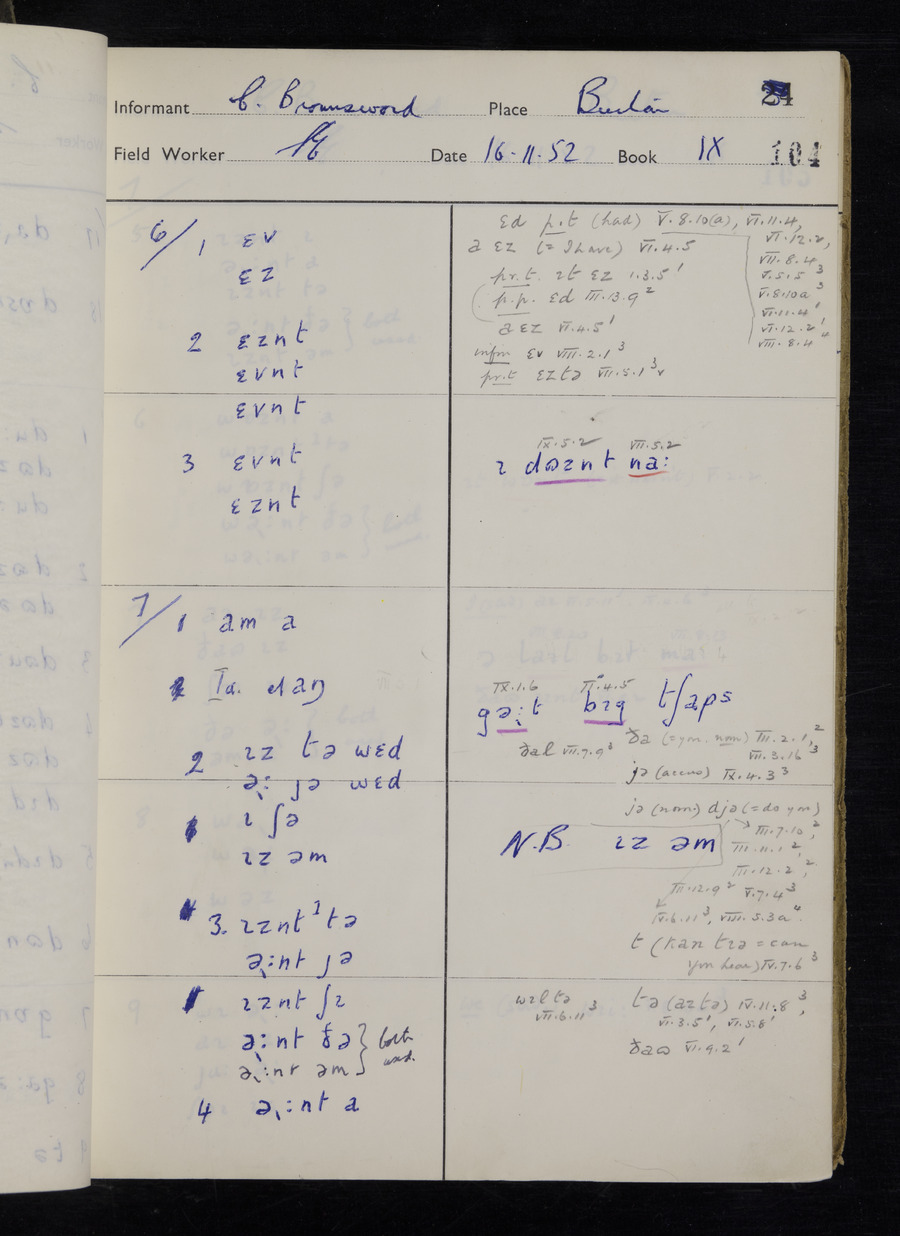 Informant C. Brownsword Place
Field Worker Date 16.11.52 Book IX 104
6/1 ɛv
ɛz
2 ɛznt
ɛvnt
ɛvnt
3 ɛvnt
ɛznt
ɛd p.t (had) V.8.10(a), VI.11.4,
VI.12.2,
VII.8.4
V.5.5³
V.8.10a³
VI.11.4¹
VI.12.2¹
VIII.8.4⁴
a ɛz (= I have) VI.4.5
pr.t. ɪt ɛz 1.3.5¹
p.p. ɛd III.13.9²
a ɛz VI.4.5¹
infin ɛv VIII.2.1³
pr.t ɛztə VII.5.1³
IX.5.2 VII.5.2
ɪ dɷznt na:
7/1 am a
2 ɪz tə wɛd
ə˞: jə wɛd
ɪ ʃə
ɪz əm
3. ɪznt tə
ə˞:nt jə
ɪznt ʃɪ
ə˞:nt ðə } both
ə˞:nt əm } used
4 ə˞:nt a
IX.1.6 II.4.5
gə˞:t bɪg tʃaps
ðal VII.7.9³
ðə (= you. nom) III.2.1,²
VII.3.16³
jə (accus) IX.4.3³
jə (nom) djə (= do you)
III.7.10,²
III.11.1²,
III.12.2²,
III.12.9² V.7.4³
IV.6.11³, VIII.5.3a⁴.
N.B. ɪz əm
t (kan tɪə = can
you hear) IV.7.6³
wɪltə
VII.6.11³
tə (aztə) IV.11.8³,
VI.3.5¹, VI.5.8¹
ðaɷ VI.9.2¹